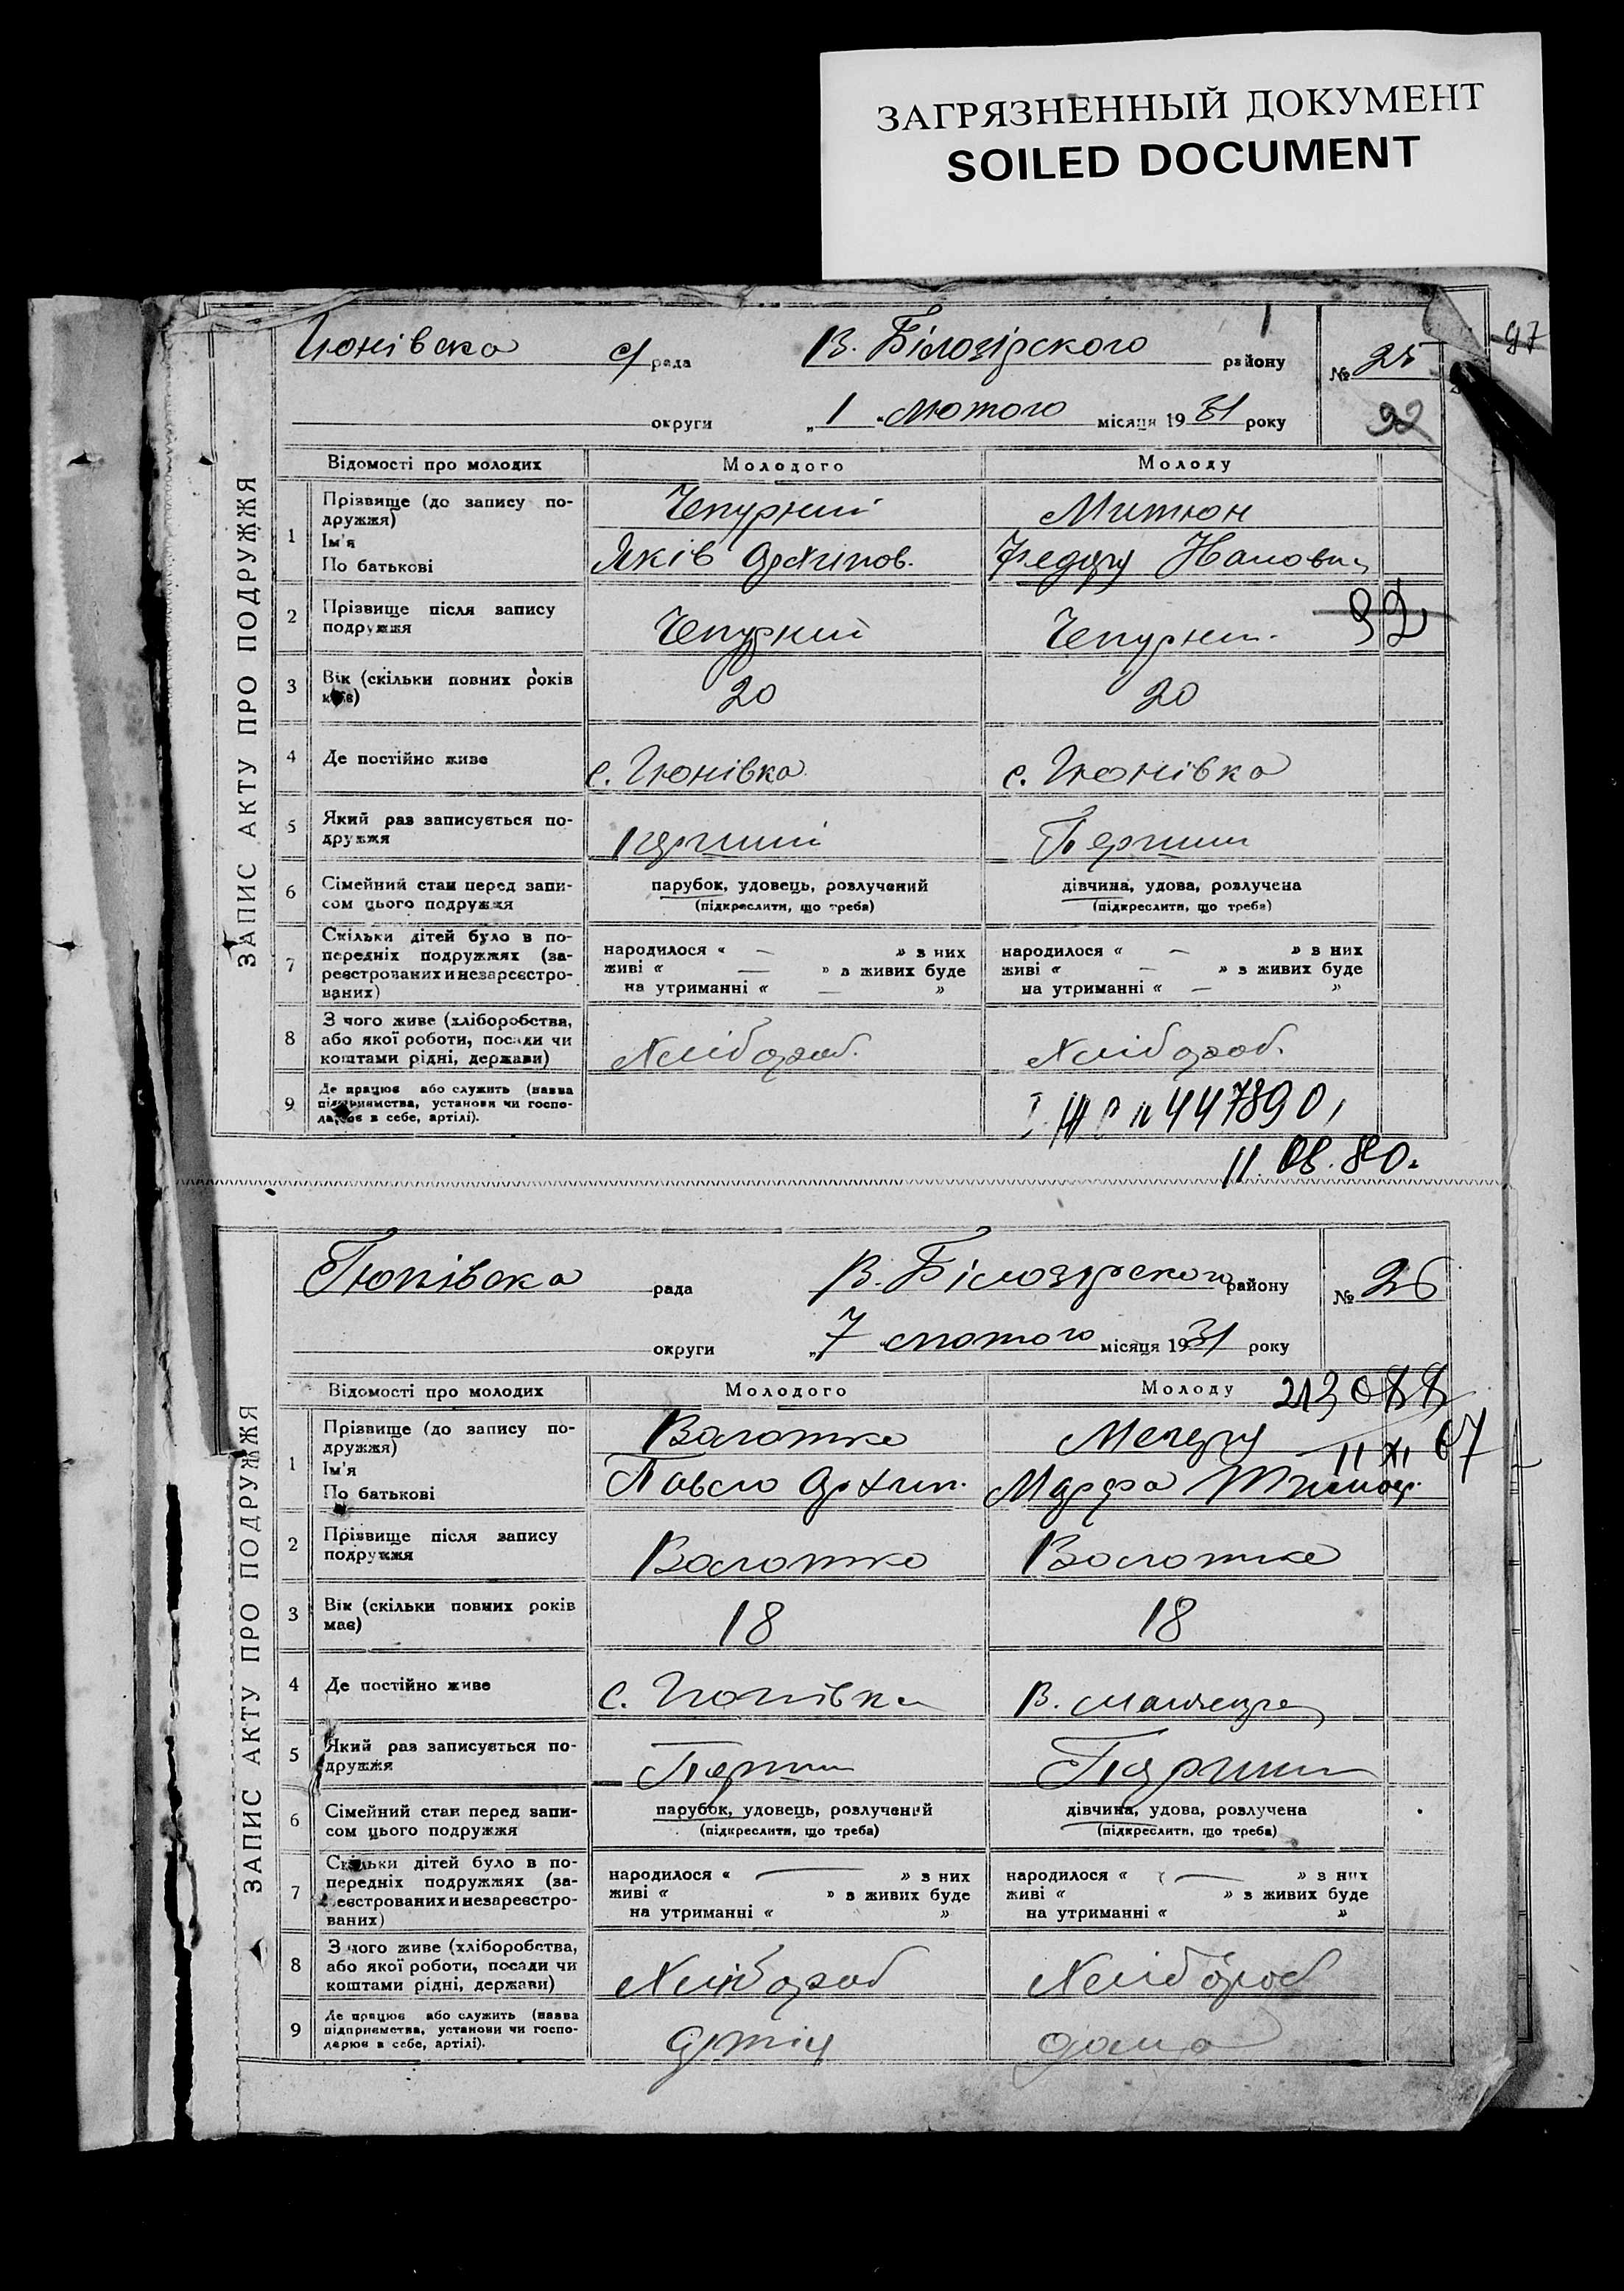 ЗАГРЯЗНЕННЫЙ ДОКУМЕНТ
SOILED DOCUMENT
97
ЗАПИС АКТУ ПРО ПОДРУЖЖЯ
Гюнівска с/рада В. Білозірского району № 25
округи „1 " Лютого місяця 1931 року 92
Відомості про молодих Молодого Молоду
1 Прізвище (до запису по- Чепурний
дружжя)
Ім'я
По батькові Яків Архипов.
2 Прізвище після запису
подружжя Чепурний Чепурни. 92
3 Вік (скільки повних років
має) 20 20
4 Де постійно живе с. Гюнівка с. Гюнівка
5 Який раз записується по-
дружжя перший Перший
6 Сімейний стан перед запи- парубок, удовець, розлучений дівчина, удова, розлучена
сом цього подружжя (підкреслити, що треба) (підкреслити, що треба)
7 Скільки дітей було в по-
передніх подружжях (за- народилося « — » з них народилося « — » з них
реєстрованих и незареєстро- живі « — » з живих буде живі « — » з живих буде
ваних) на утриманні « — » на утриманні « — »
8 З чого живе (хліборобства,
або якої роботи, посади чи
коштами рідні, держави) Хлібороб. Хлібороб.
9 Де працює або служить (назва
підприємства, установи чи госпо-
дарює в себе, артілі). 447890,
11.08.80.
ЗАПИС АКТУ ПРО ПОДРУЖЖЯ
Гюнівска рада В. Білозірского району № 26
округи „7 " лютого місяця 1931 року
Відомості про молодих Молодого Молоду 213088
1 Прізвище (до запису по-
дружжя) Волотко 11 XI 67
Ім'я
По батькові Павло Архип. Марфа
2 Прізвище після запису
подружжя Волотко Волотко
3 Вік (скільки повних років
має) 18 18
4 Де постійно живе с. Гюнівка В.
5 Який раз записується по-
дружжя Перший Перший
6 Сімейний стан перед запи- парубок, удовець, розлучений дівчина, удова, розлучена
сом цього подружжя (підкреслити, що треба) (підкреслити, що треба)
7 Скільки дітей було в по-
передніх подружжях (за- народилося « — » з них народилося « — » з них
реєстрованих и незареєстро- живі « » з живих буде живі « » з живих буде
ваних) на утриманні « » на утриманні « »
8 З чого живе (хліборобства,
або якої роботи, посади чи
коштами рідні, держави) Хлібороб Хлібороб
9 Де працює або служить (назва
підприємства, установи чи госпо-
дарює в себе, артілі). Артіл дома